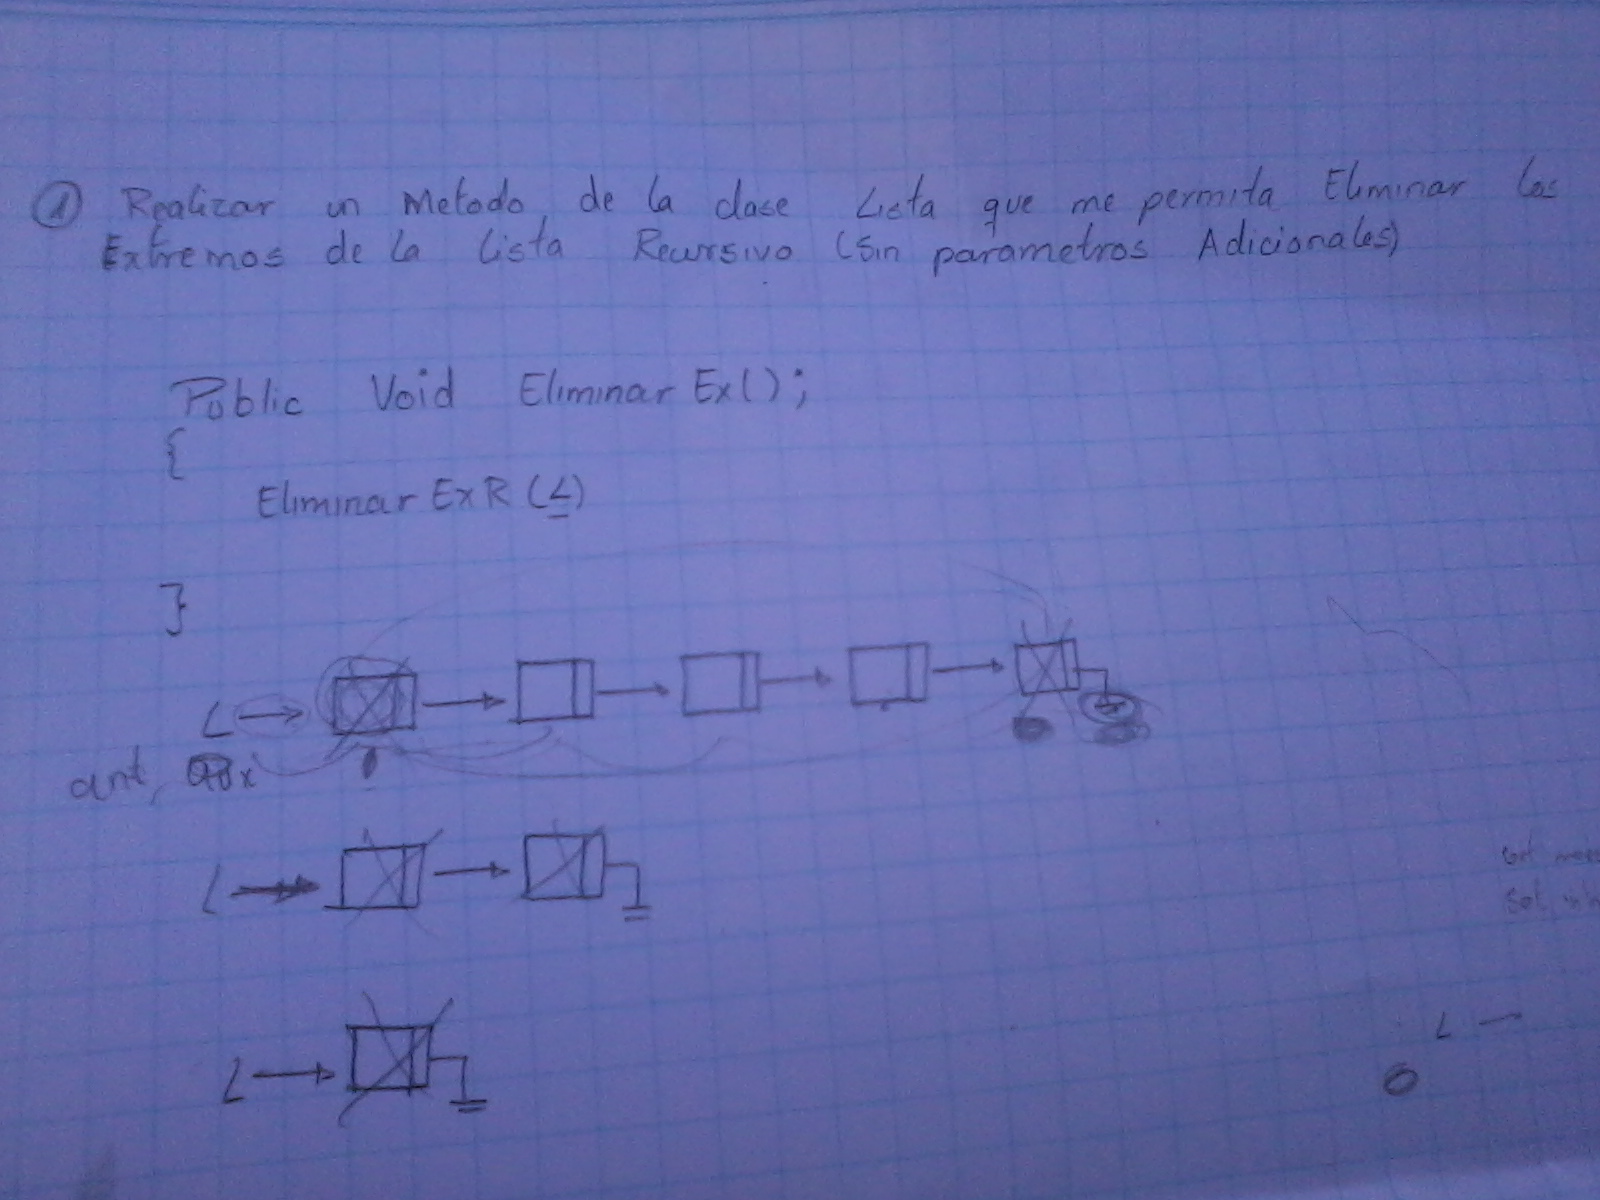 ① Realizar un Metodo, de la clase Lista que me permita Eliminar los
Extremos de la Lista Recursivo (Sin parametros Adicionales)
Public Void Eliminar Ex();
{
Eliminar ExR (L)
}
L
ant, aux
L
L
L